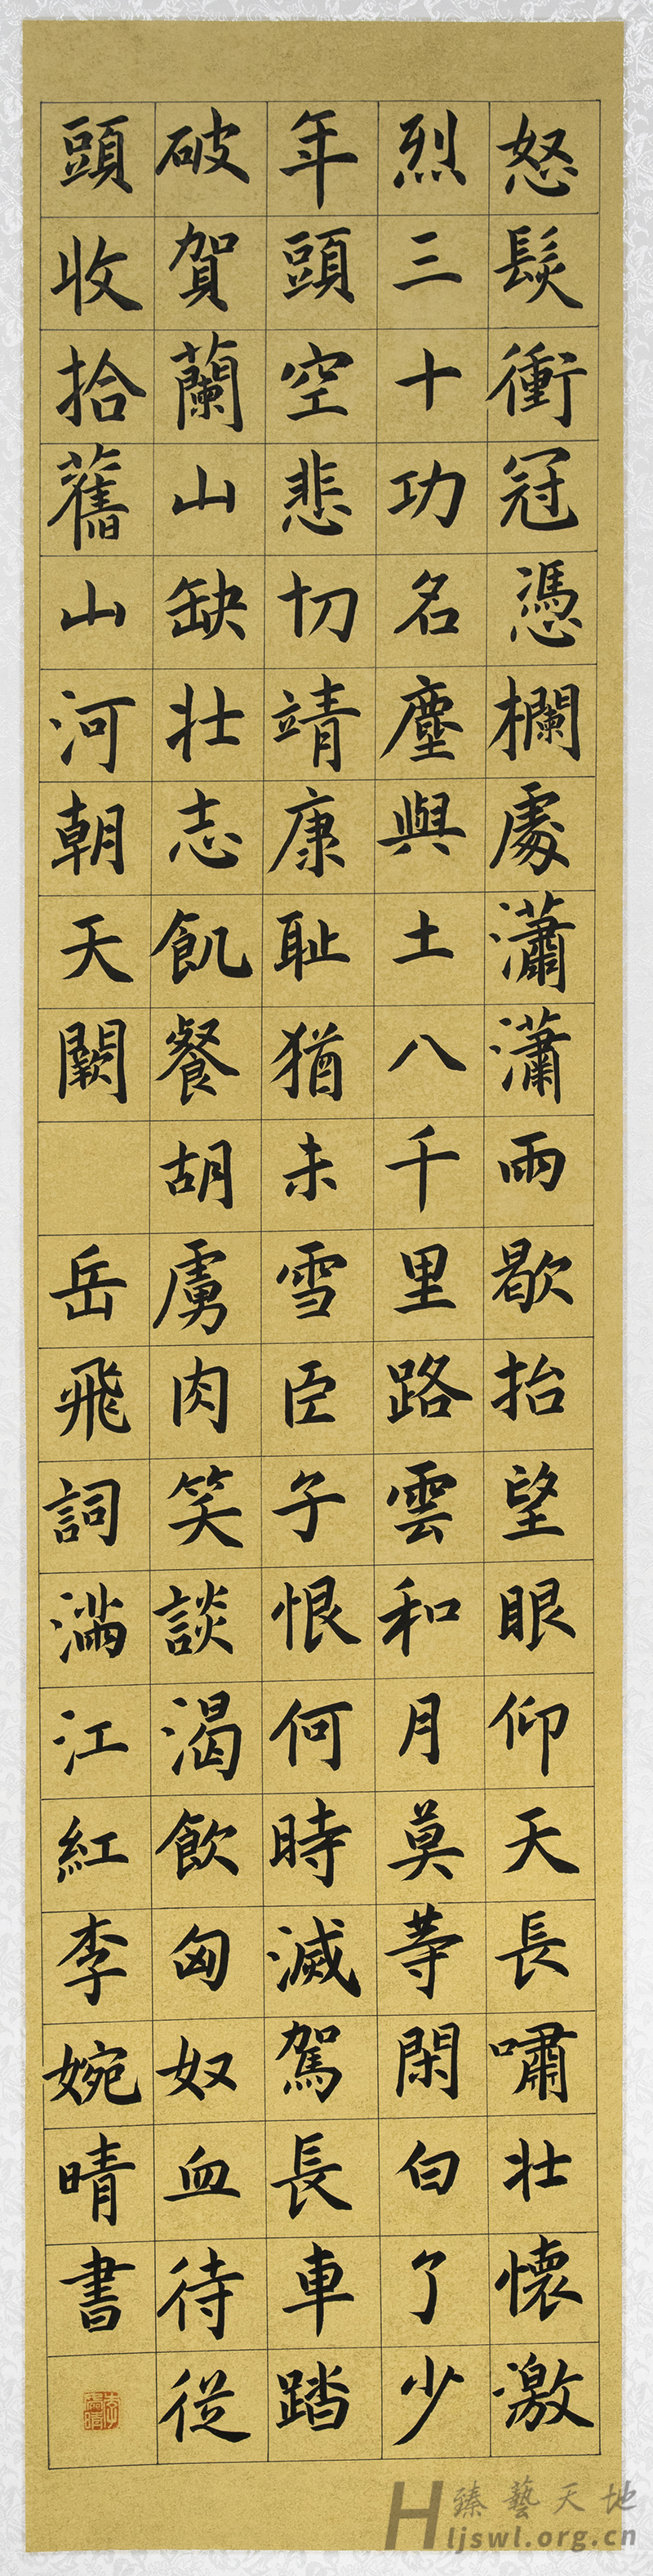 怒髮衝冠憑欄處瀟瀟雨歇抬望眼仰天長嘯壯懷激
烈三十功名塵與土八千里路雲和月莫等閑白了少
年頭空悲切靖康恥猶未雪臣子恨何時滅駕長車踏
破賀蘭山缺壯志飢餐胡虜肉笑談渴飲匈奴血待從
頭收拾舊山河朝天闕
岳飛詞滿江紅李婉晴書
臻藝天地
Hljswl.org.cn